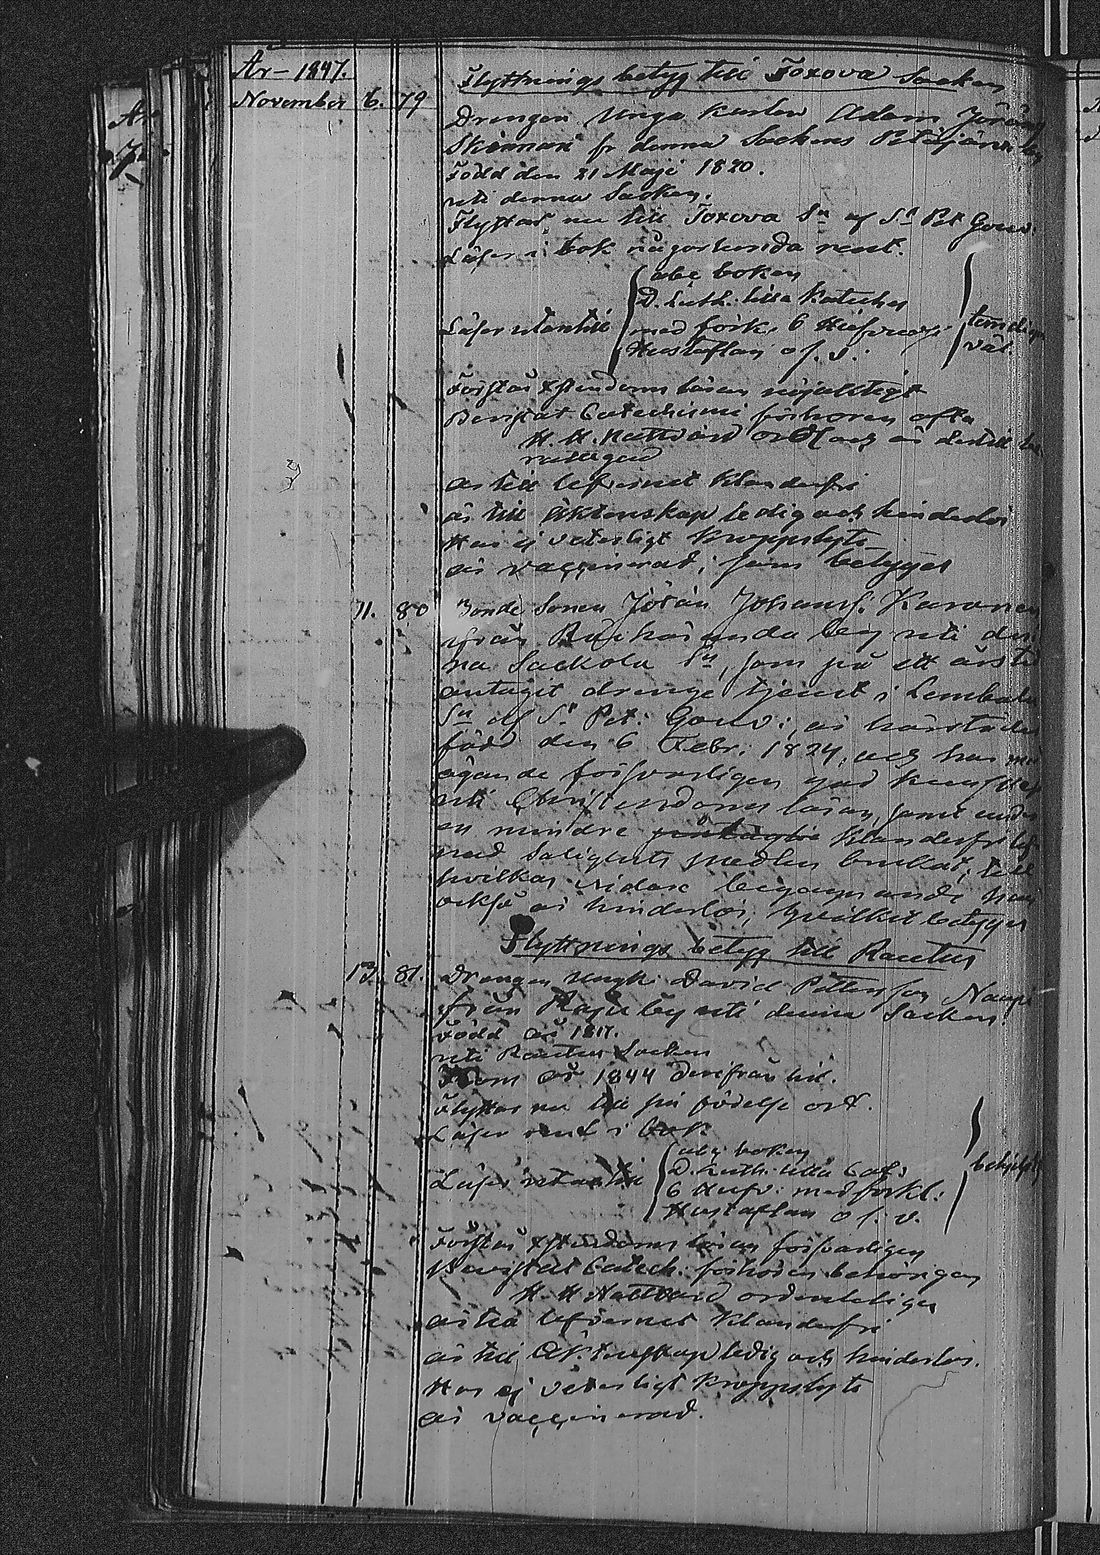 År 1847.
November 6. 79
Flyttnings betyg till Toxova Socken
Drengen Unga Karlen Adam Jöranss
Skinnari fr denna Sockens Petäjärvi by
Född den 21 Maji 1820.
uti denna Socken.
Flyttar nu till Toxova Sn af St Pet Gouv.
Läser i bok någorlunda rent.
Läser utantill
abc boken
D. Luth: lilla Kateches
med förk. 6 Hufv
Hustaflan o. s. v.
temligen
väl
Förstår Xstendoms läran nöjaktigt
Bevistat Catechismi förhören ofta
H. H. Nattvard och är dertill be
rättigad
är till lefvernet Klanderfri
är till Äktenskap ledig och hinderlös
Har ej veterligt kroppslyte
är vaccinerad, som betygas
11. 80
Bonde Sonen Jöran Johanss. Karonen
ifrån by uti den
na Sackola Sn, som på ett års tid
antagit drenge tjenst i Lembala
Sn af St Pet: Gouv:, är härstädes
född den 6 Febr: 1824, och har med
ägande försvarligen god kunskap
uti Christendoms läran, samt under
en mindre Klanderfri lef
nad Salighets medlen brukat, till
hvilkas vidare begagnande han
också är hinderlös, hvilket betygas
Flyttnings betyg till Rautus
13. 81.
Drengen Unge David Pettersson Naupa
från by uti denna Socken.
Född år 1817.
uti Rautus Socken
Kom år 1844 derifrån hit.
Flyttar nu till sin födelse ort.
Läser rent i bok.
Läser utantill
abc boken
D. Luth. lilla Cat:
6 Hufv: med förkl:
Hustaflan o. s. v.
behjelpl
Förstår Xstendoms läran försvarligen
Bevistat Catech. förhören behörigen
H. H. Nattvard ordenteligen
är till lefvernet Klanderfri
är till Äktenskap ledig och hinderlös.
Har ej veterligt kroppslyte
är vaccinerad.